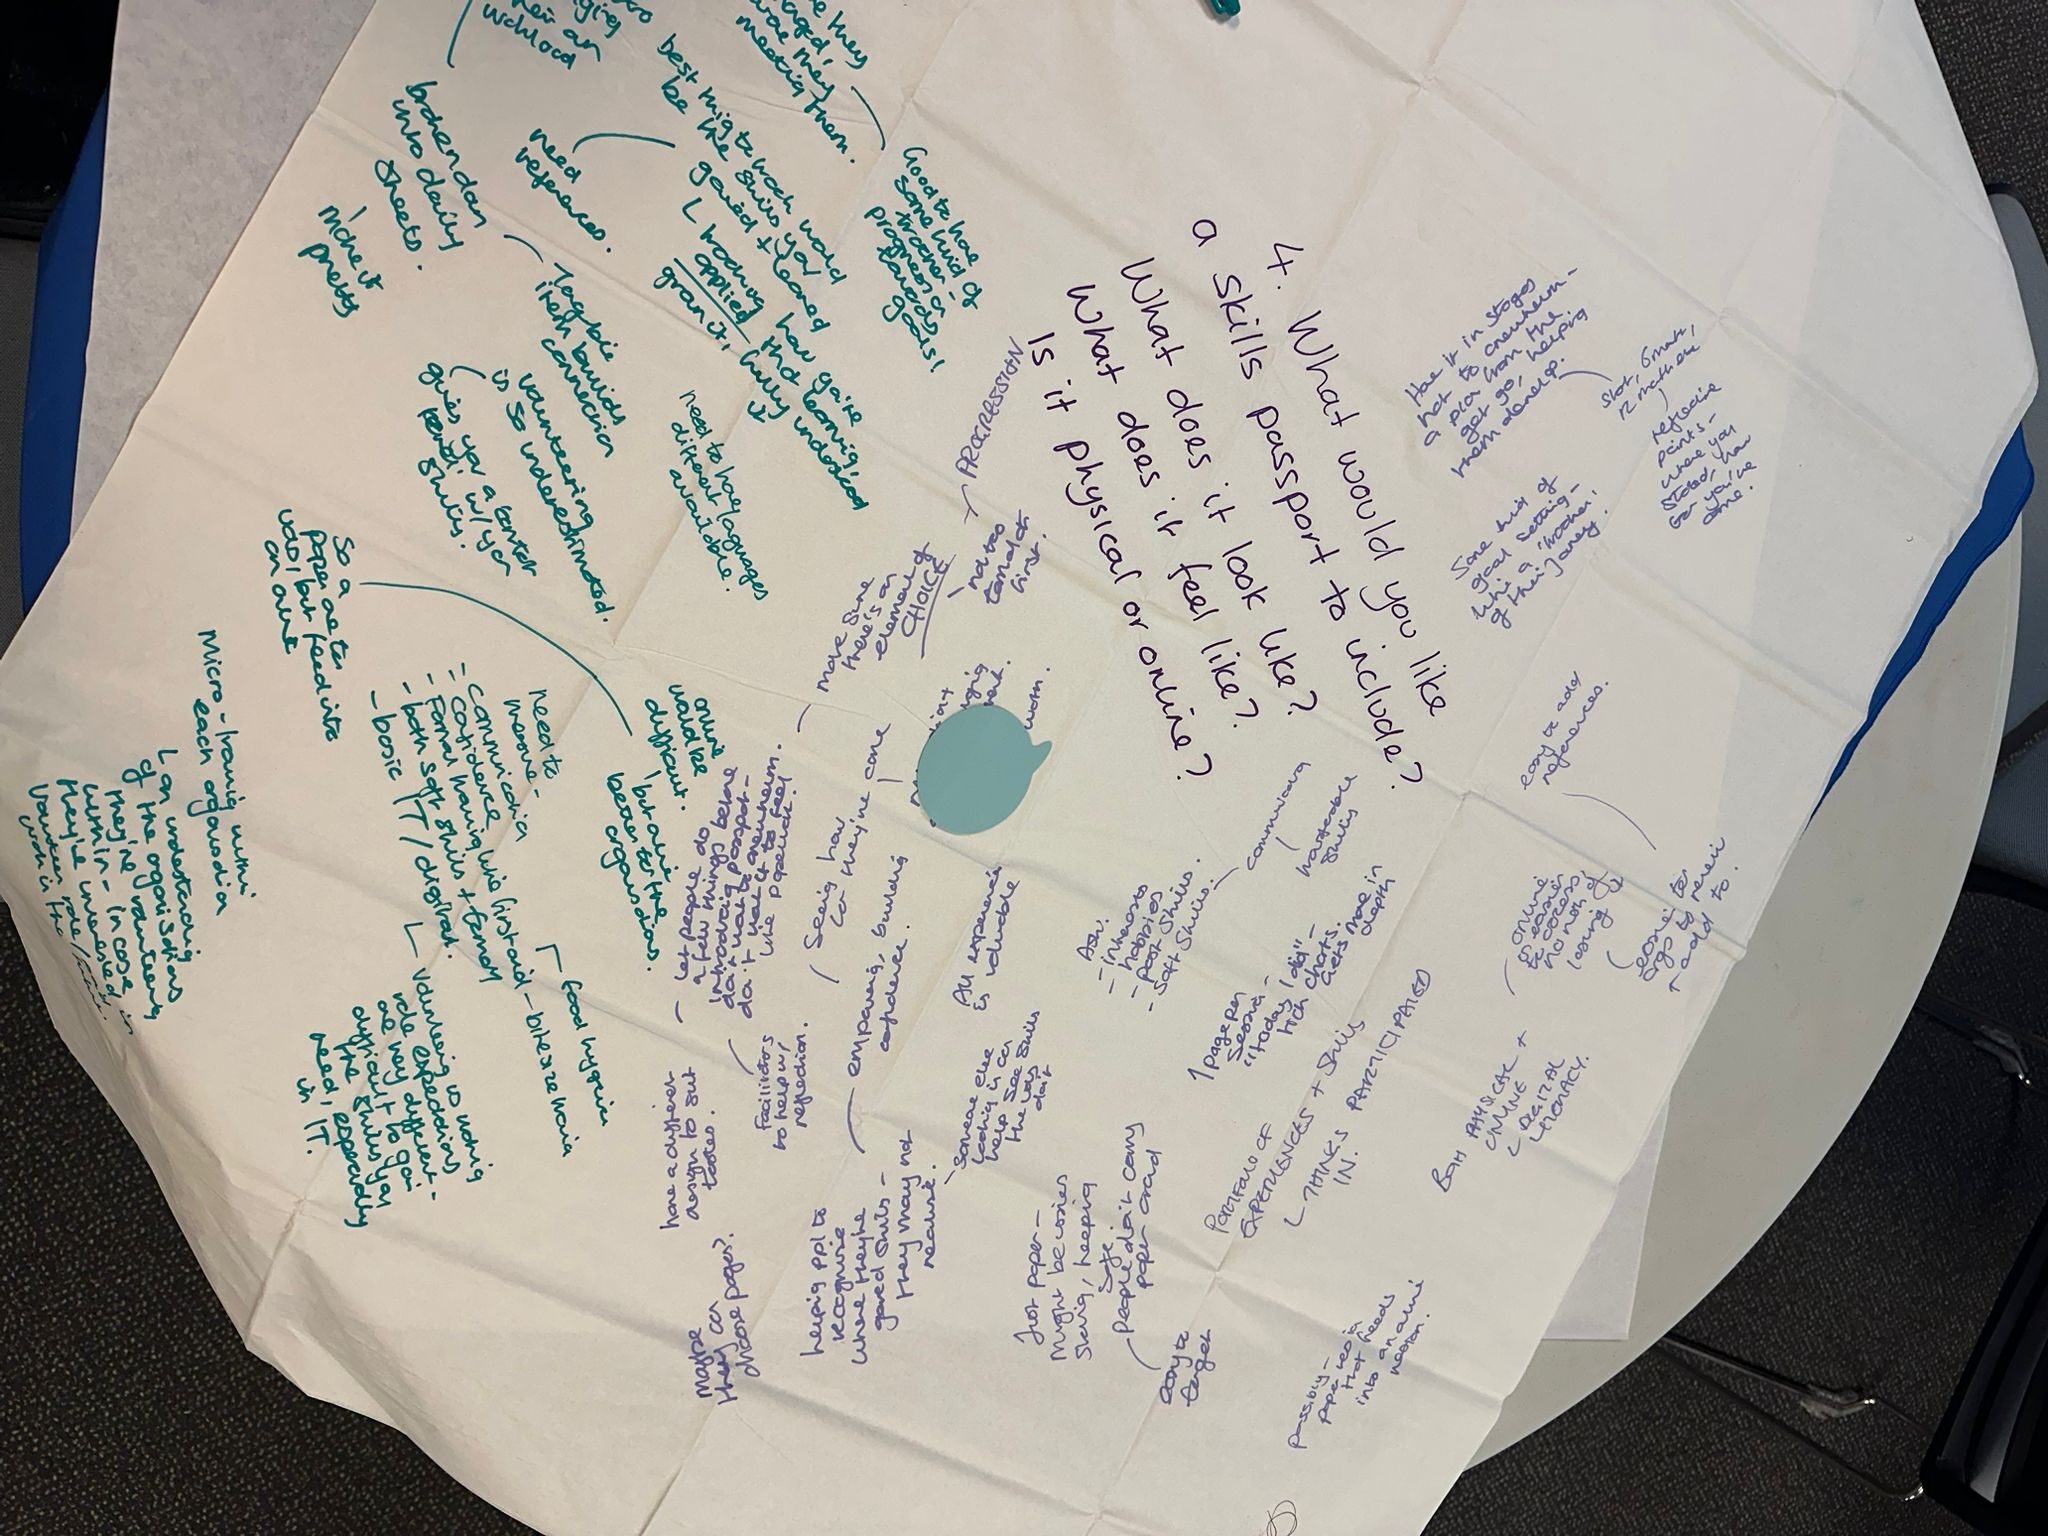 4. What would you like
a skills passport to include?
What does it look like?
What does it feel like?
Is it physical or online?
Have it in stages
not to overwhelm -
a plan from the
get go, helping
them develop.
start, 6 month,
12 month
reflective
points -
where you
started, how
far you've
come.
Some kind of
goal setting -
of their journey.
easy to add
references.
online
easier
to access,
no risk of
losing it
easier for
orgs to
add to.
Both PHYSICAL +
ONLINE
DIGITAL
LITERACY.
Possibly -
paper version
that feeds
into an online
version.
PORTFOLIO OF
EXPERIENCES + Skills
THINGS PARTICIPATED
IN.
1 page per
session -
"today I did" -
tick charts.
Gets more in
depth
Add:
- interests
- hobbies
- past skills.
- soft skills.
communication
transferable
skills
Just paper -
might be issues
storing, keeping
safe.
people don't carry
paper around
easy to
forget
All experience
is valuable
someone else
looking in can
help see skills
the vols
don't
helping ppl to
recognise
where they've
gained skills -
they may not
realise.
empowering, building
confidence.
Seeing how
far they've come
make sure
there's an
element of
CHOICE
PROGRESSION
not too
formal at
first.
- Let people do
a few things before
introducing passport -
don't want to overwhelm.
don't want it to feel
like paperwork.
Facilitators
to help w/
reflection.
have a different
design to suit
tastes.
Maybe
they can
choose pages?
Good to have
some kind of
tracker -
progression
towards
goals!
them.
best thing to work
be like skills you
gained + learned
how you've
applied that learning,
fully understood
need
references.
workload
broken down
into daily
sheets.
make it
pretty
volunteering
is so underestimated.
gives you a better
skills.
need to have languages
different
available.
So a
paper one to
vols, but feed into
an online
online
would be
difficult.
but online
better for the
organisations.
Micro-training within
each organisation
an understanding
of the organisations
they're volunteering
within - in case
they're interested in
volunteer role/
work in the
need to
measure -
- communication
- confidence
- formal training like first aid - bitesize training
- both soft skills + formal
- basic IT/digital.
food hygiene
volunteering vs working
role expectations
are very different -
difficult to gain
the skills you
need, especially
in IT.